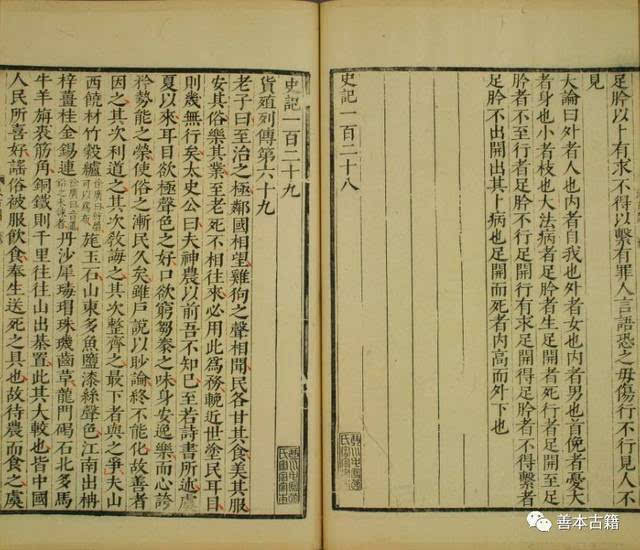 足肣以上有求不得以繫有罪人言語恐之毋傷行不行見人不
見
大論曰外者人也內者自我也外者女也內者男也首俛者憂大
者身也小者枝也大法病者足肣者生足開者死行者足開至足
肣者不至行者足肣不行足開行有求足開得足肣者不得繫者
足肣不出開出其卜病也足開而死者內高而外下也
史記一百二十八
史記一百二十九
貨殖列傳第六十九
老子曰至治之極鄰國相望雞狗之聲相聞民各甘其食美其服
安其俗樂其業至老死不相往來必用此為務輓近世塗民耳目
則幾無行矣太史公曰夫神農以前吾不知已至若詩書所述虞
夏以來耳目欲極聲色之好口欲窮芻豢之味身安逸樂而心誇
矜勢能之榮使俗之漸民久矣雖戶說以眇論終不能化故善者
因之其次利道之其次教誨之其次整齊之最下者與之爭夫山
西饒材竹穀纑旄玉石山東多魚鹽漆絲聲色江南出枏
梓薑桂金錫連丹沙犀瑇瑁珠璣齒革龍門碣石北多馬
牛羊旃裘筋角銅鐵則千里往往山出棊置此其大較也皆中國
人民所喜好謠俗被服飲食奉生送死之具也故待農而食之虞
善本古籍